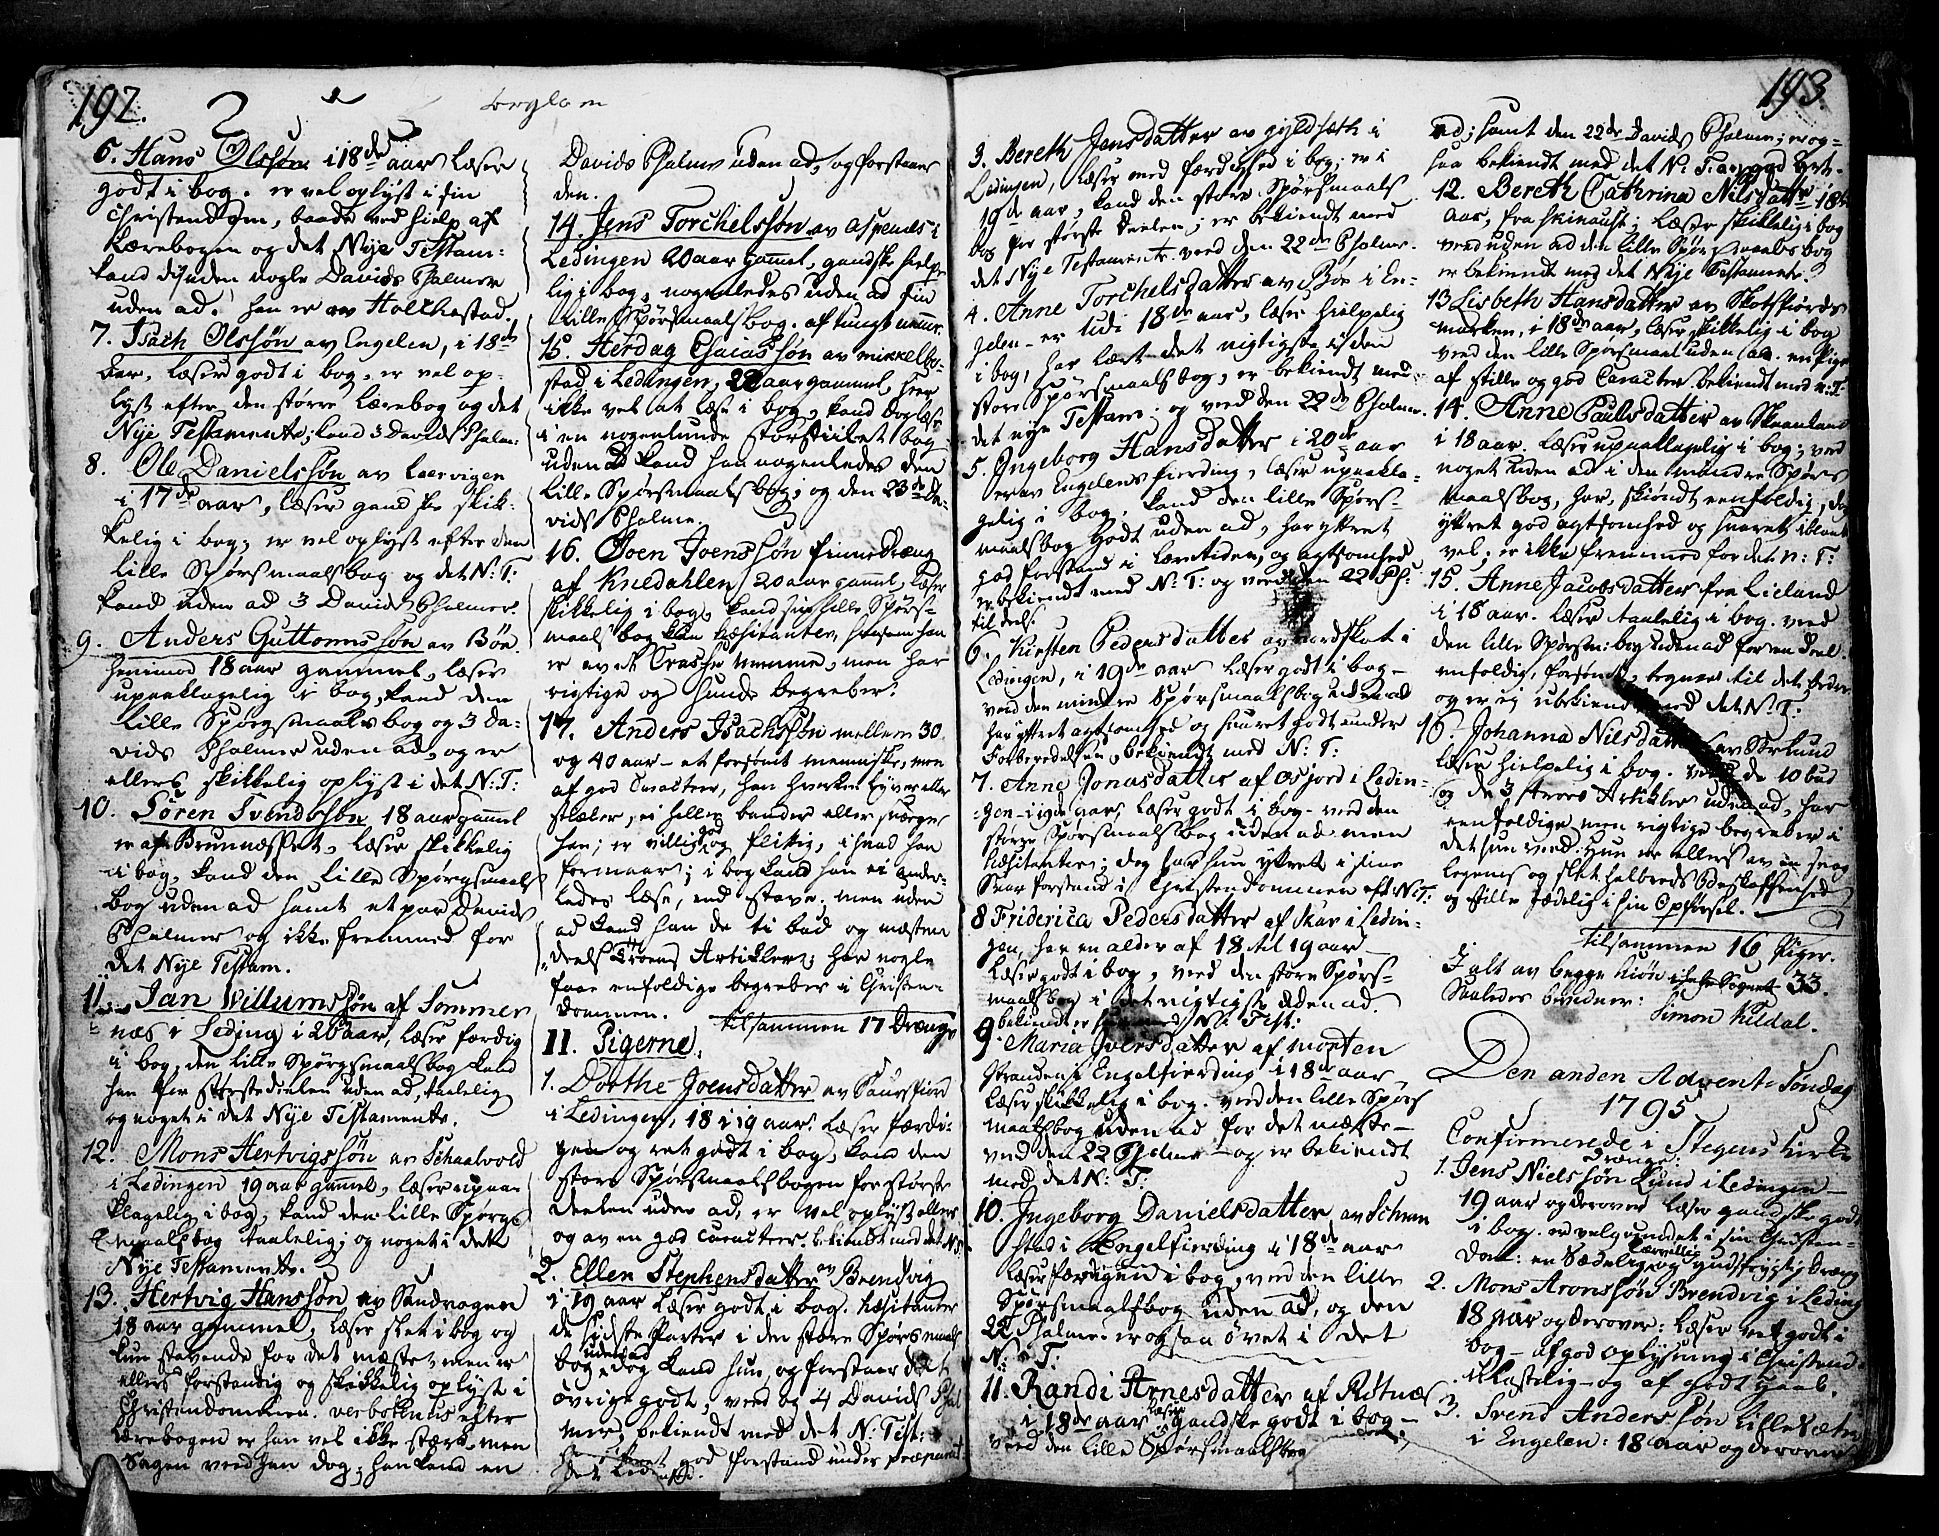 192.
6. Hans Olssøn i 18de aar læser
godt i bog. er vel oplyst i sin
Christendom, baade med hielp af
Lærebogen og det Nye Testam:
kand uden nogle Davids Psalmer
uden ad. han er av Holkestad.
7. Isach Olssøn av Engelen, i 18de
aar, læser godt i bog. er vel op-
lyst efter den større Lærebog og det
Nye Testamente; kand 3 Davids Psalm:
8. Ole Danielssøn av Leervigen
i 17de aar, læser ganske skik-
kelig i bog; er vel oplyst efter den
lille Spørsmaalsbog og det N: T:
kand uden ad 3 Davids Psalmer.
9. Anders Guttormssøn av Bøe
henimod 18 aar gammel, læser
upaaklagelig i bog, kand den
Lille Spørgsmaalsbog og 3 Da-
vids Psalmer uden ad, og er
ellers skikkelig oplyst i det N: T:
10. Søren Svendssøn 18 aar gammel
er af Brunnæsset, læser skikkelig
i bog, kand den lille Spørgsmaals
bog uden ad samt et par Davids
Psalmer og ikke fremmed for
det Nye Testam.
11. Jan Willumssøn af Sommer
næs i Leding i 20 aar, læser færdig
i bog, den lille Spørgsmaalsbog kand
han for største delen uden ad, taalelig
og noget i det Nye Testamente.
12. Mons Hertvigssøn av Schaalvold
i Ledingen 19 aar gammel, læser upaa-
klagelig i bog, kand den lille Spørgs-
maalsbog taalelig; og noget i det
Nye Testamente.
13. Hertvig Hanssøn av Sandvogen
18 aar gammel, læser slet i bog og
kun stavende for det meste, men er
ellers forstandig og skikkelig oplyst i
Christendommen. verbotenus efter
Lærebogen er han vel ikke stærk, men
Sagen veed han dog; han kand en
Davids Psalme uden ad, og forstaaer
den.
14. Jens Torchelssøn av Aspenes i
Ledingen 20 aar gammel, gandske hielpe-
lig i bog, nogenledes uden ad sin
Lille Spørsmaalsbog. af tungt nemme.
15. Herdag Esaiassøn av Mikkelbo-
stad i Ledingen, 22 aar gammel, har
ikke vel at læse i bog, kand dog læse
i en nogenlunde storstiilet bog
uden ad kand han nogenledes den
Lille Spørsmaalsbog; og den 23de Da-
vids Psalme.
16. Joen Joenssøn finnedræng
af Kneldahlen, 20 aar gammel, læser
skikkelig i bog, kand sin lille Spørs-
maalsbog hæsitanter, saasom han
er av et Trasche nemme, men har
rigtige og sunde begreber.
17. Anders Isachssøn mellem 30
og 40 aar – et forsømt menniske, men
af god Caracteer, han hverken lyver eller
stæler, ei heller bander eller sværger
han; er villig og flittig, i hvad han
formaaer; i bog kand han ei ander-
ledes læse, end stave; men uden
ad kand han de ti bud og mæsten
deels Troens Artikler; har nogle
faae enfoldige begreber i Christen-
dommen.
tilsammen 17 Drænge
11. Pigerne.
1. Dorthe Joensdatter av Saursfiord
i Ledingen, 18 i 19 aar. læser færdi-
gen og ret godt i bog, kand den
store Spørsmaalsbogen for største
deelen uden ad, er vel oplyst ellers
og av en god Caracteer. bekiendt med det N. T.
2. Ellen Stephensdatter av Brendvig
i 19 aar læser godt i bog. hæsitanter
de sidste Parter i den store Spørsmaals
bog uden ad dog kand hun, og forstaaer det
øvrige godt, veed og 4 Davids Psal
mer, bekiendt med det N: Test:
har yttret god forstand under præparat
193.
3. Bereth Jensdatter av Gyldsæth i
Ledingen, læser med færdighed i bog; er i
19de aar, kand den store Spørsmaals
bog for største deelen; er bekiendt med
det Nye Testamente. veed den 22de Psalme.
4. Anne Torchelsdatter av Bøe i En-
gelen – er udi 18de aar, læser hielpelig
i bog, har lært det vigtigste i den
store Spørsmaalsbog, er bekiendt med
det nye Testam: og veed den 22de Psalme.
5. Ingeborg Hansdatter i 20de aar
er av Engelens fierding, læser upaakla-
gelig i bog, kand den lille Spørs-
maalsbog godt uden ad, har yttret
god forstand i læretiden, og agtsomhed
er bekiendt med N: T: og veed den 22 Ps:
til deels
6. Kirsten Pedersdatter av Nordskot i
Ledingen, i 19de aar læser godt i bog –
veed den mindre Spørsmaalsbog uden ad
har yttret agtsomhed og svaret godt under
Forberedelsen, bekiendt med N: T:
7. Anne Jonasdatter af Osfjord i Ledin-
gen – i 19de aar, læser godt i bog – veed den
større Spørsmaalsbog uden ad men
hæsitanter; dog har hun yttret i sine
Svar forstand i Christendommen eft. N: T:
8 Friderica Pedersdatter af Kar i Ledin-
gen, har en alder af 18 til 19 aar
læser godt i bog, veed den store Spørs-
maalsbog i det vigtigste uden ad
bekiendt er N: Test:
9. Maria Iversdatter af Morten
stranden i Engelfierding i 18de aar
læser skikkelig i bog. veed den lille Spørs
maalsbog uden ad for det mæste –
veed den 22 Psalme – og er bekiendt
med det N: T:
10. Ingeborg Danielsdatter av Schran
stad i Engelfierding i 18de aar
læser færdigen i bog, veed den lille
Spørsmaalsbog uden ad, og den
22 Psalme. er ogsaa øvet i det
N: T:
11. Randi Arnesdatter af Røtnæs
i 18de aar læser gandske godt i bog –
veed den lille Spørsmaalsbog uden
ad; samt den 22de Davids Psalme; er og-
saa bekiendt med det N: T: av god Art.
12. Bereth Cathrina Nilsdatter 18
aar, fra Skinalust; læser skikkelig i bog
veed uden ad den lille Spørsmaals bog
er bekiendt med det Nye Testamente.
13 Lisbeth Hansdatter av Skotsfiords
marken, i 18de aar, læser skikkelig i bog
veed den lille Spørsmaal uden ad. en Pige
af stille og god Caracter. bekiendt med N: T:
14. Anne Paulsdatter av Skaanland
i 18 aar. læser upaaklagelig i bog; veed
noget uden ad i den mindre Spørs
maalsbog, har, skiøndt eenfoldig, dog
yttret god agtsomhed og svaret iblant
vel. er ikke fremmed for det N: T:
15. Anne Jacobsdatter fra Lieland
i 18 aar. læser taalelig i bog. veed
den lille Spørsm: bog uden ad for en deel.
enfoldig, forsømt, begavet til det bedre
og er ej ubekiendt med det N: T:
16. Johanna Nilsdatter av Sørlund
læser hielpelig i bog. veed de 10 bud
og de 3 troes Artikler uden ad, har
eenfoldige men rigtige begreber i
det hun veed. Hun er ellers av en svag
legems og slet helbreds beskaffenhed
og stille sædelig i sin Opførsel.
tilsammen 16 Piger.
I alt av begge kiøn i hele Sognet 33.
Saaledes bevidner:
Simon Kildal.
Den anden Advent-Søndag
1795
Confirmerede i Stegens kirke
Drænge:
1. Jens Nielssøn Lund i Ledingen –
19 aar og derover læser gandske godt
i bog. er vel grundet i sin Christen-
dom: en sædelig lærvillig og gudfrygtig Dræng
2. Mons Aronssøn Brendvig i Leding
18 aar og derover: læser ret godt i
bog – af god oplysning i Christend.
3. Svend Anderssøn Lillesæter
i Engelen: 18 aar og derover